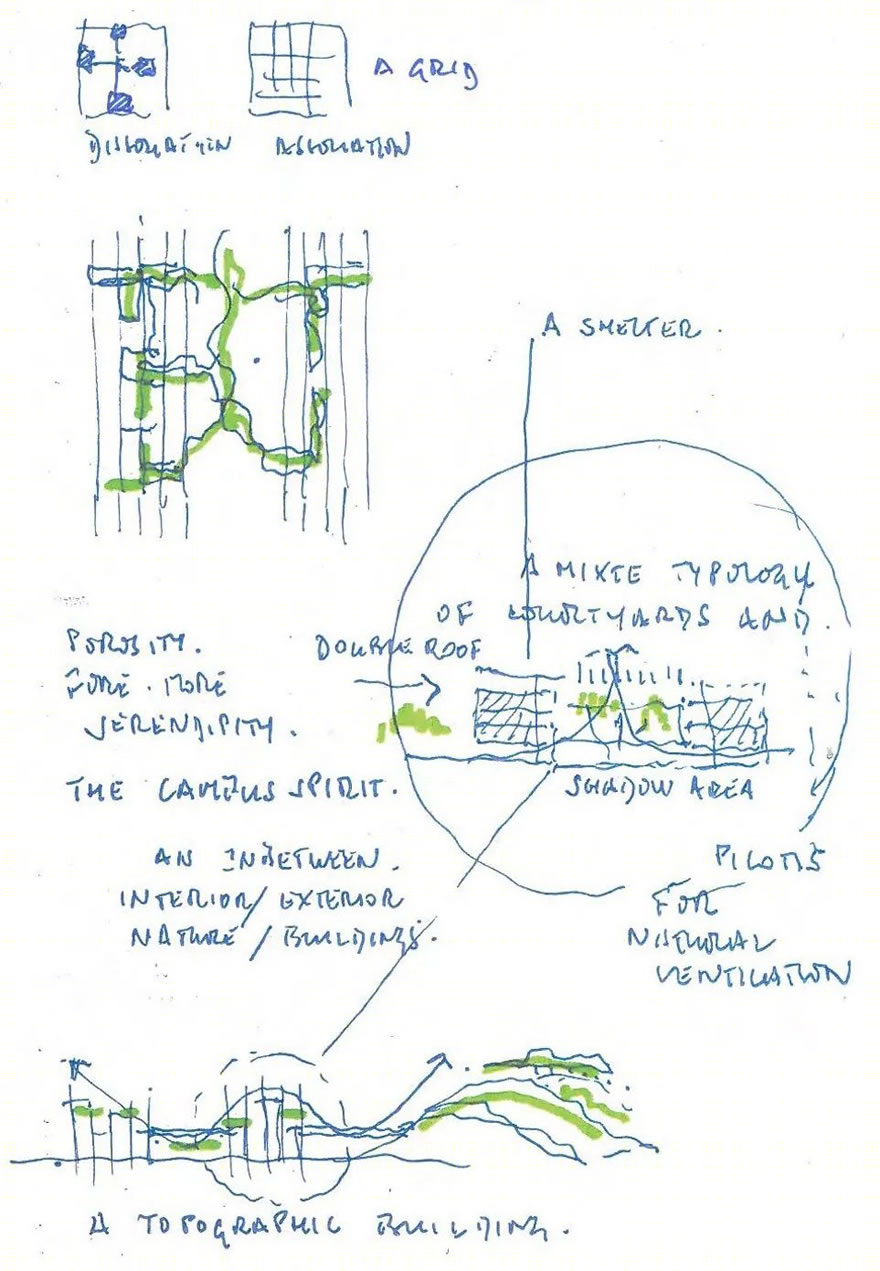 A GRID
DISLOCATION ASSOCIATION
A SHELTER.
A MIXTE TYPOLOGY
OF COURTYARDS AND.
DOUBLE ROOF
POROSITY.
FORE. MORE
SERENDIPITY.
THE CAMPUS SPIRIT.
SHADOW AREA
AN INBETWEEN.
INTERIOR/EXTERIOR
NATURE/BUILDINGS.
PILOTIS
FOR
NATURAL
VENTILATION
A TOPOGRAPHIC BUILDING.